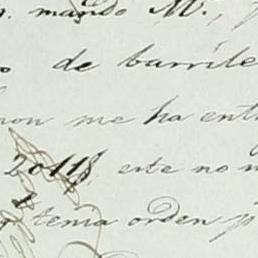 mando M.
de barrile
me ha ent
20118 este no
tenia orden p